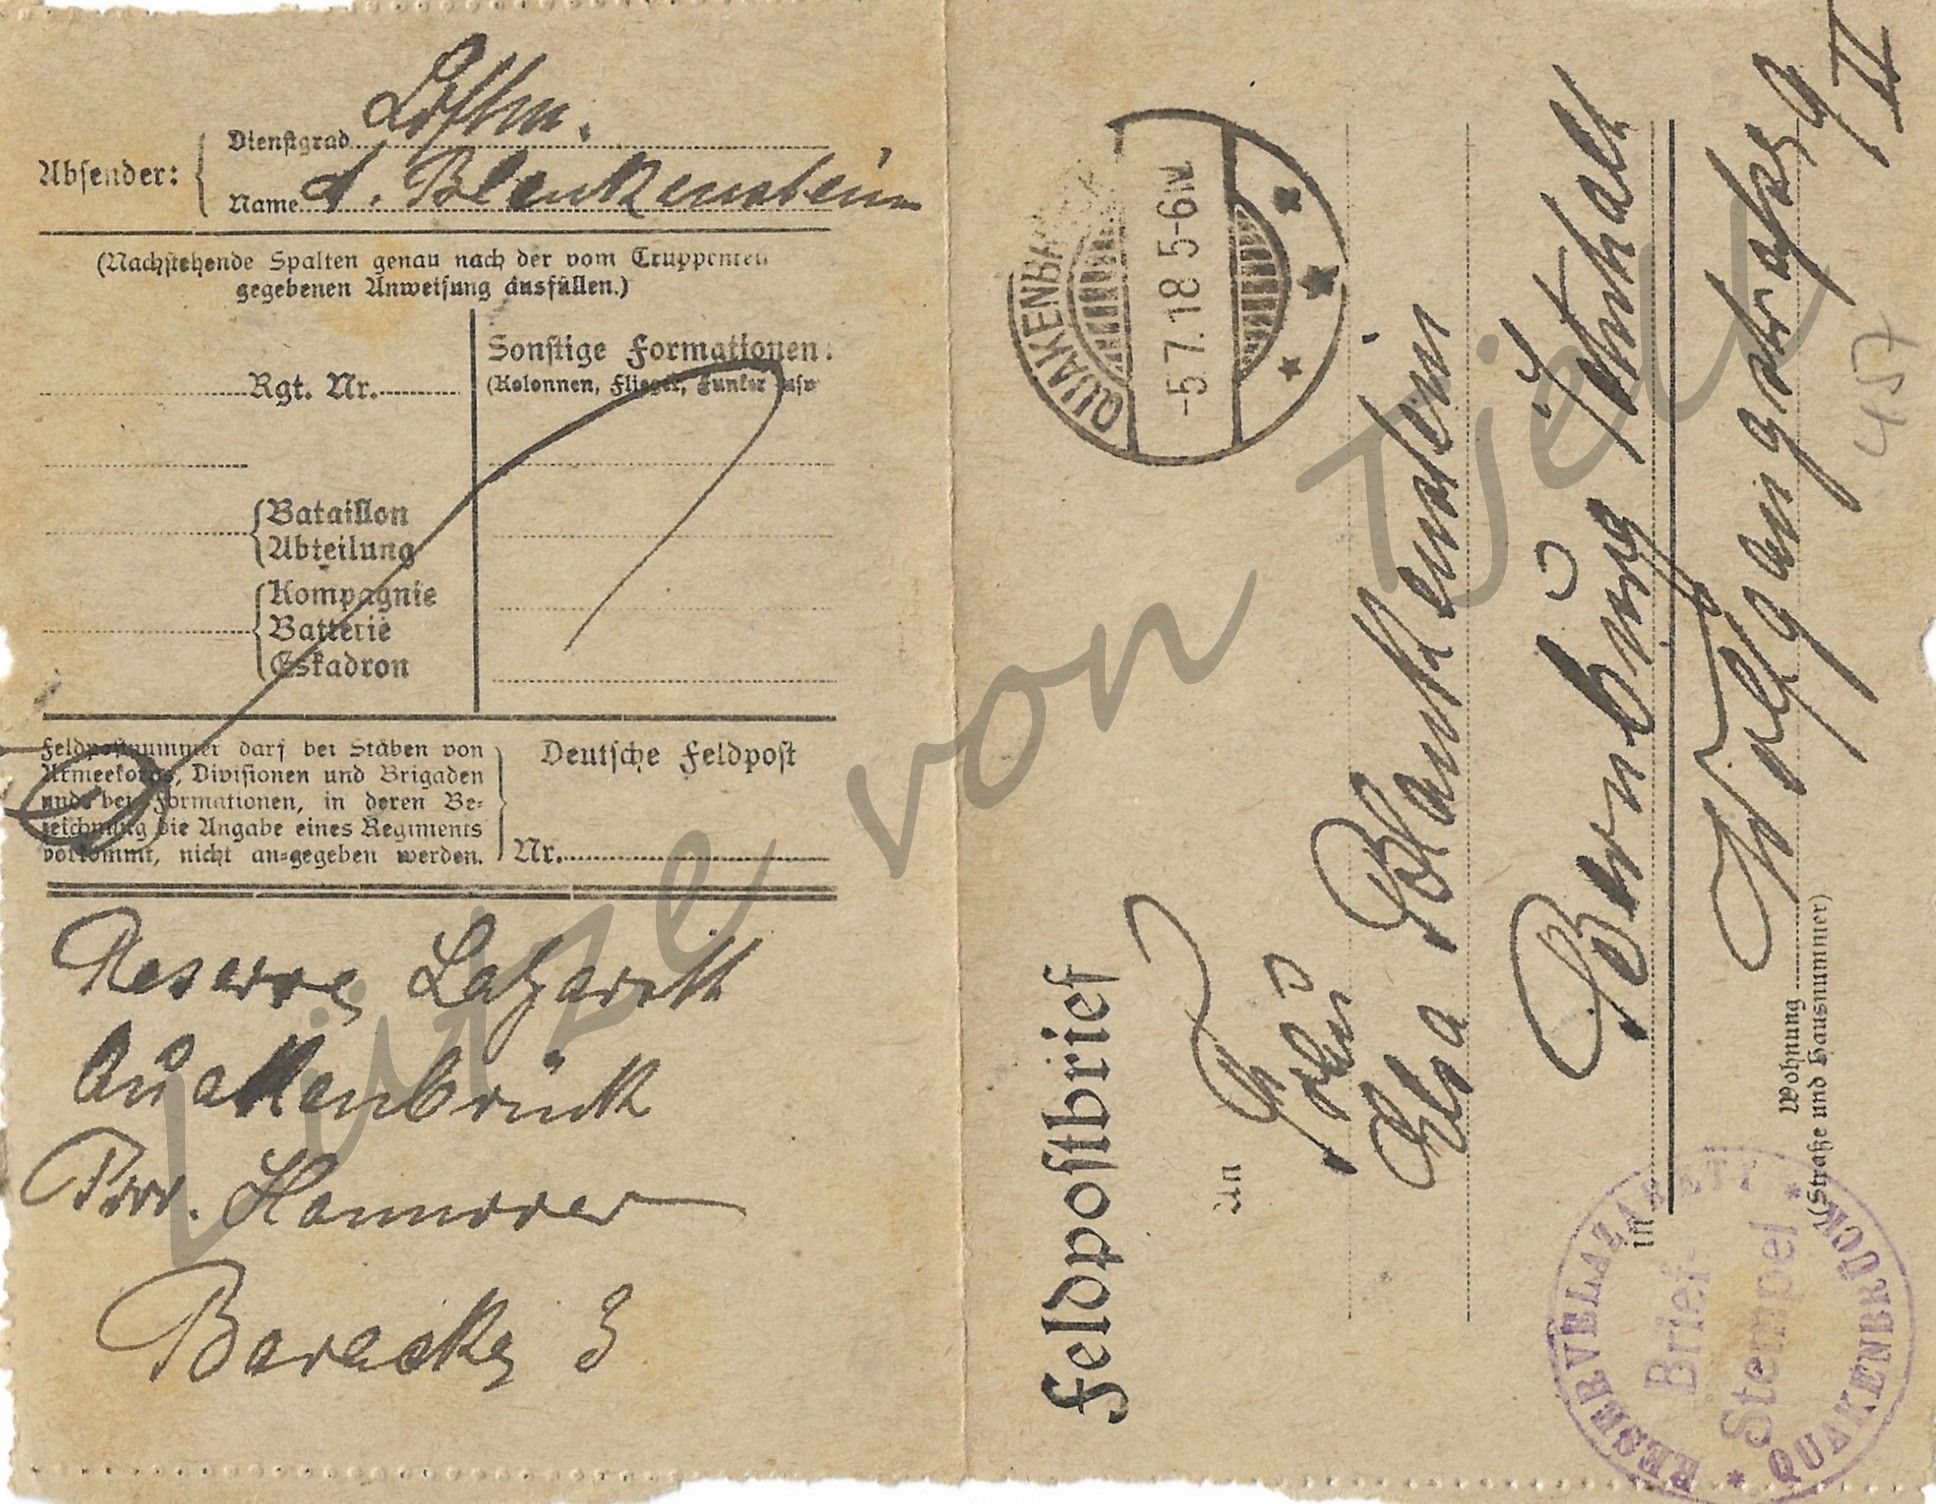 Absender:
Dienstgrad
Name A. Blankenstein
(Nachstehende Spalten genau nach der vom Truppenteil
gegebenen Anweisung ausfüllen.)
Rgt. Nr.
Bataillon
Abteilung
Kompagnie
Batterie
Eskadron
Sonstige Formationen:
(Kolonnen, Flieger, Funker usw
Feldpostnummer darf bei Stäben von
Armeekorps, Divisionen und Brigaden
und bei Formationen, in deren Be-
zeichnung die Angabe eines Regiments
vorkommt, nicht an-gegeben werden.
Deutsche Feldpost
Nr.
Reserve Lazarett
Quakenbrück
Prov. Hannover
Baracke 3
Feldpostbrief
QUAKENBRÜCK
-5.7.18 5-6N
An
Elsa Blankenstein
in Bernburg
Wohnung Wolfgangstraße 9 II
(Straße und Hausnummer)
457
RESERVELAZARETT
* QUAKENBRÜCK *
Brief-
Stempel
Lütze von Tjel